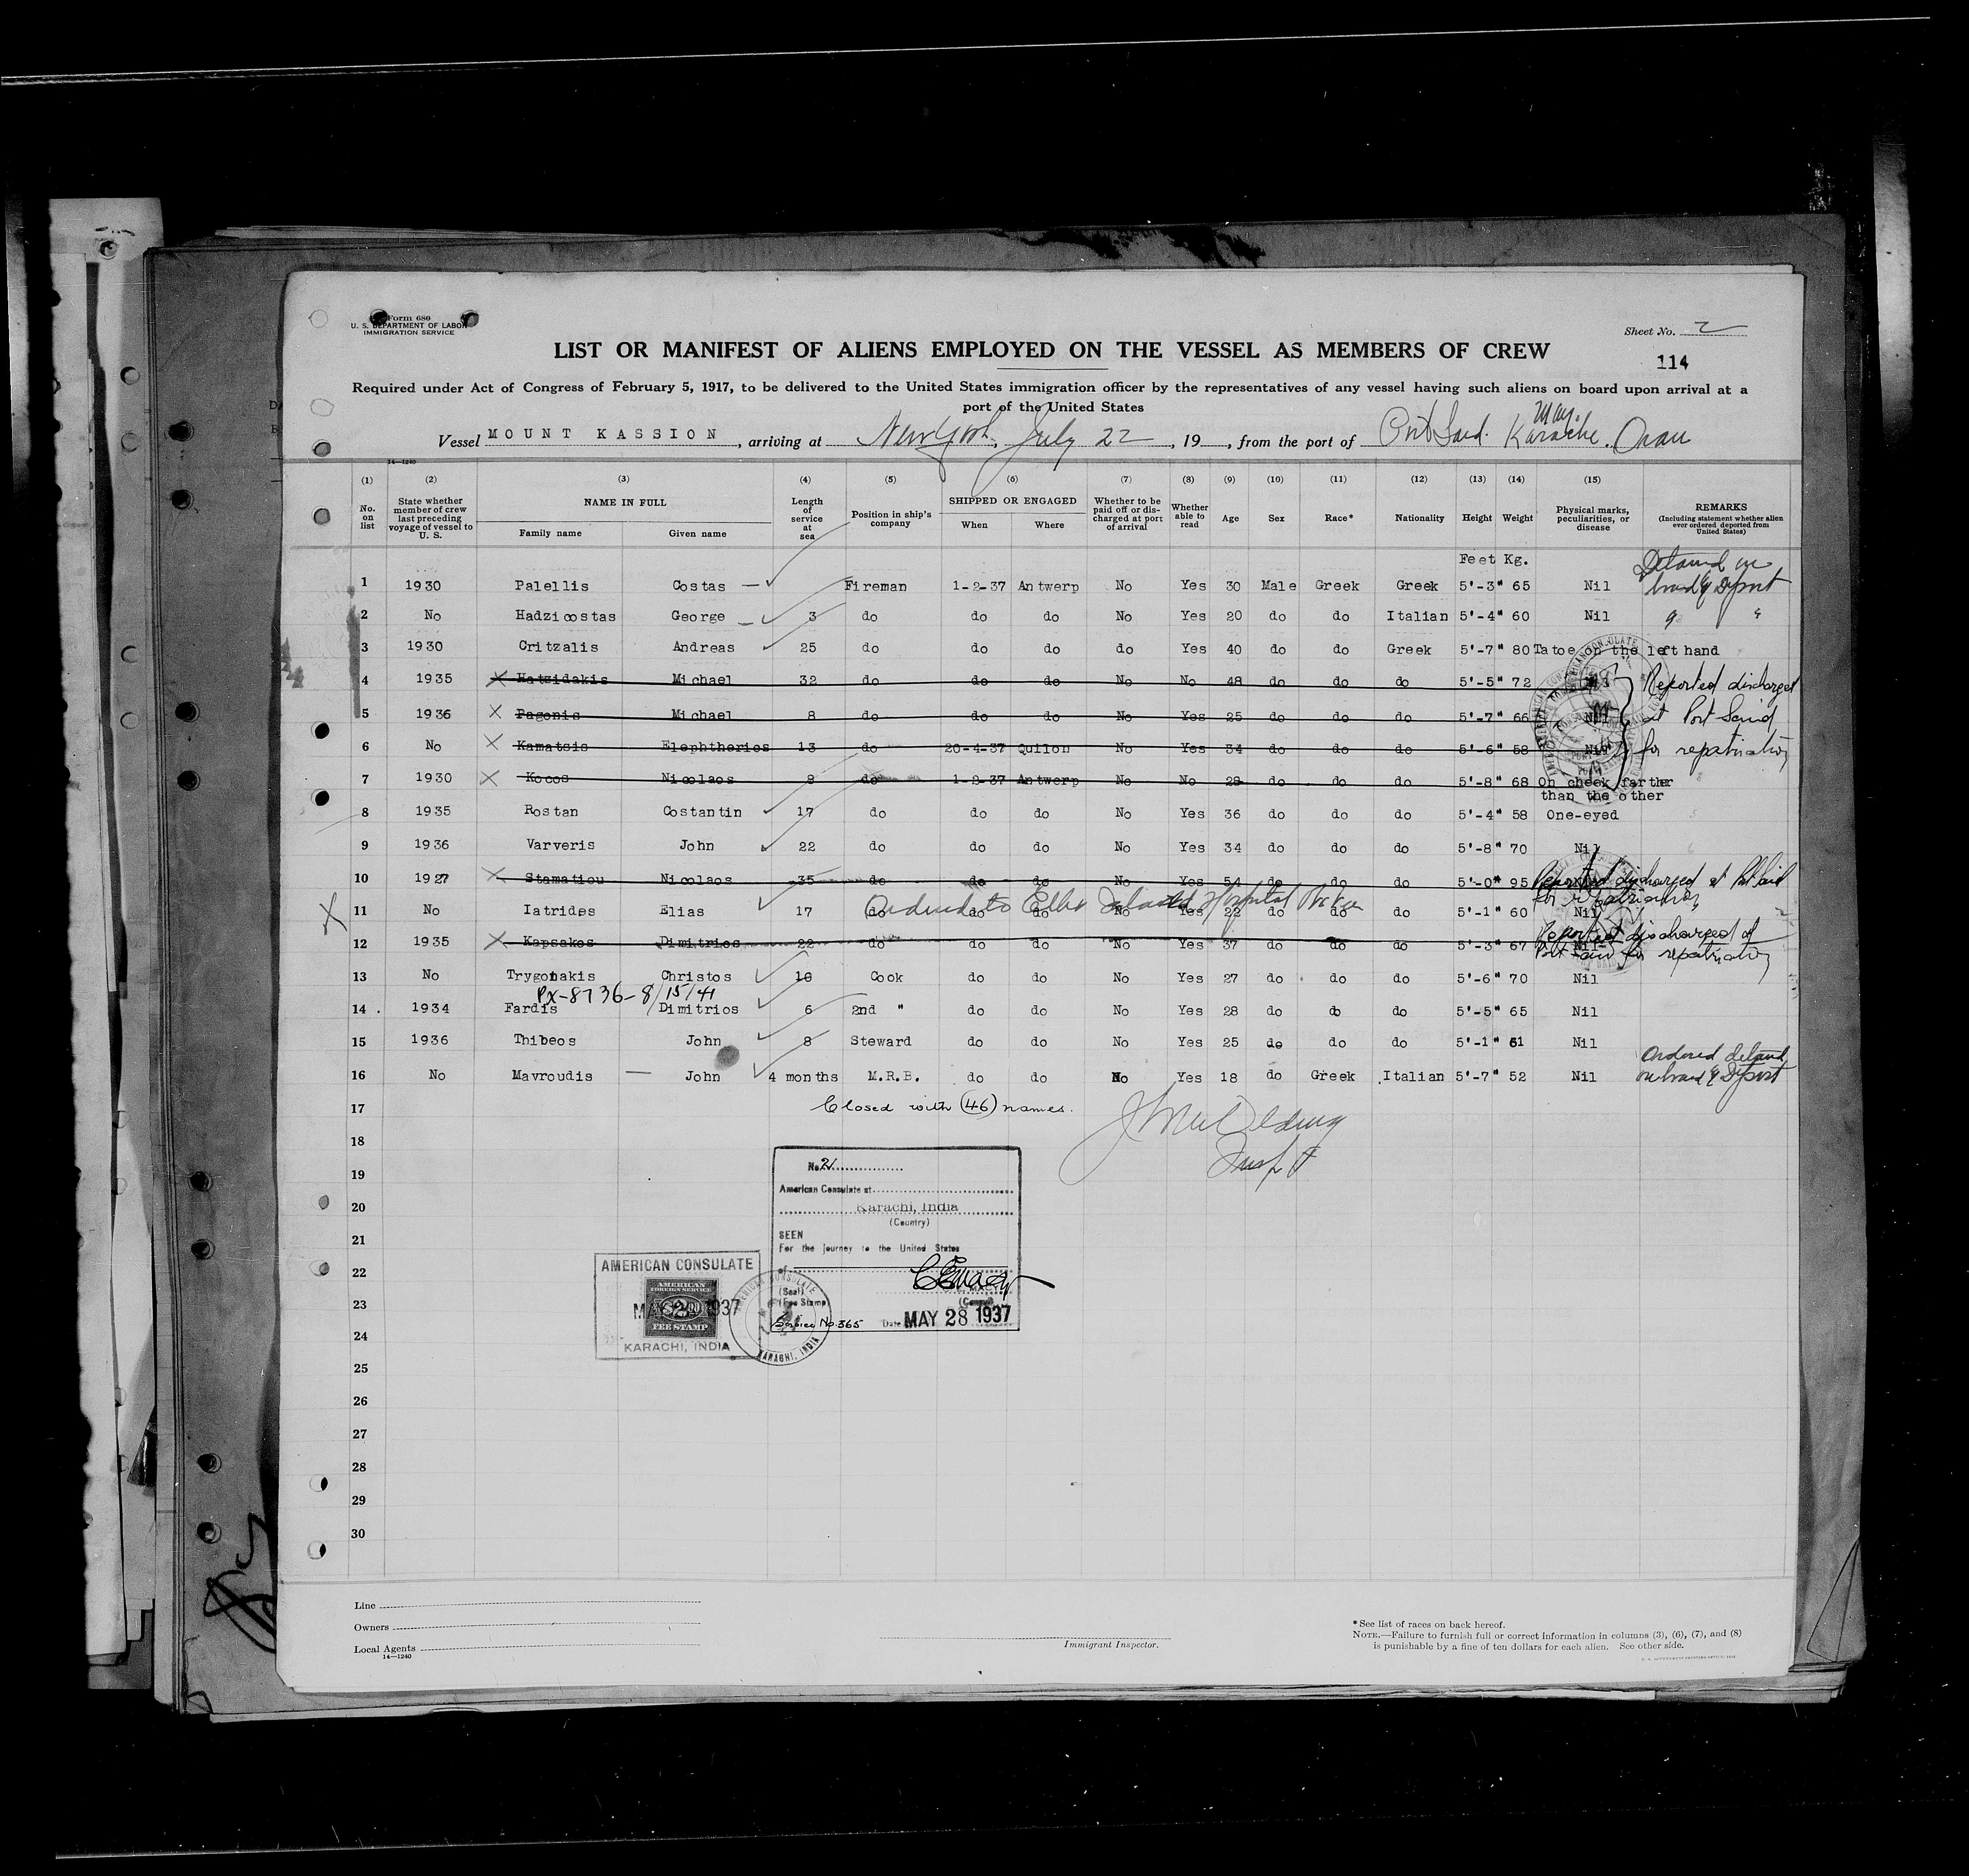 Form 680
U. S. DEPARTMENT OF LABOR
IMMIGRATION SERVICE
Sheet No. 2
LIST OR MANIFEST OF ALIENS EMPLOYED ON THE VESSEL AS MEMBERS OF CREW
114
Required under Act of Congress of February 5, 1917, to be delivered to the United States immigration officer by the representatives of any vessel having such aliens on board upon arrival at a
port of the United States
Vessel MOUNT KASSION, arriving at New York, July 22, 19, from the port of Port Said. Karachi. Oran
14—1240
(1) (2) (3) (4) (5) (6) (7) (8) (9) (10) (11) (12) (13) (14) (15)
No. on list
State whether member of crew last preceding voyage of vessel to U. S.
NAME IN FULL
Family name Given name
Length of service at sea
Position in ship's company
SHIPPED OR ENGAGED
When Where
Whether to be paid off or discharged at port of arrival
Whether able to read
Age Sex Race* Nationality Height Weight
Physical marks, peculiarities, or disease
REMARKS
(Including statement whether alien ever ordered deported from United States)
Feet Kg.
1 1930 Palellis Costas Fireman 1-2-37 Antwerp No Yes 30 Male Greek Greek 5'-3" 65 Nil Detained on board & Deport
2 No Hadzicostas George 3 do do do No Yes 20 do do Italian 5'-4" 60 Nil
3 1930 Critzalis Andreas 25 do do do do Yes 40 do do Greek 5'-7" 80 Tatoe on the left hand
4 1935 Hatzidakis Michael 32 do do do No No 48 do do do 5'-5" 72 Nil Reported discharged
5 1936 Pagonis Michael 8 do do do No Yes 25 do do do 5'-7" 66 Nil at Port Said
6 No Kamatsis Elephtherios 13 do 20-4-37 Quilon No Yes 34 do do do 5'-6" 58 Nil for repatriation
7 1930 Kocos Nicolaos 8 do 1-2-37 Antwerp No No 28 do do do 5'-8" 68 On cheek farther
than the other
8 1935 Rostan Costantin 17 do do do No Yes 36 do do do 5'-4" 58 One-eyed
9 1936 Varveris John 22 do do do No Yes 34 do do do 5'-8" 70 Nil
10 1927 Stamatiou Nicolaos 35 do do do No Yes 54 do do do 5'-0" 95 Nil Reported discharged at Port Said
for repatriation
Ordered to Ellis Island Hospital
11 No Iatrides Elias 17 do do do No Yes 22 do do do 5'-1" 60 Nil
12 1935 Kapsakos Dimitrios 22 do do do No Yes 37 do do do 5'-3" 67 Nil Reported discharged at
Port Said for repatriation
13 No Trygonakis Christos 10 Cook do do No Yes 27 do do do 5'-6" 70 Nil
PX-8736-8/15/41
14 1934 Fardis Dimitrios 6 2nd " do do No Yes 28 do do do 5'-5" 65 Nil
15 1936 Thibeos John 8 Steward do do No Yes 25 do do do 5'-1" 61 Nil
16 No Mavroudis John 4 months M.R.B. do do No Yes 18 do Greek Italian 5'-7" 52 Nil Ordered detained on board & Deport
17 Closed with (46) names.
18
19
20
21
22
23
24
25
26
27
28
29
30
No. 2
American Consulate at
Karachi, India
(Country)
SEEN
For the journey to the United States
of
(Seal)
(Fee Stamp)
(Consul)
Service No. 365 Date MAY 28 1937
AMERICAN CONSULATE
AMERICAN
FOREIGN SERVICE
2
FEE STAMP
KARACHI, INDIA
AMERICAN CONSULATE
KARACHI, INDIA
Line
Owners
Local Agents
14—1240
Immigrant Inspector.
* See list of races on back hereof.
NOTE.—Failure to furnish full or correct information in columns (3), (6), (7), and (8)
is punishable by a fine of ten dollars for each alien. See other side.